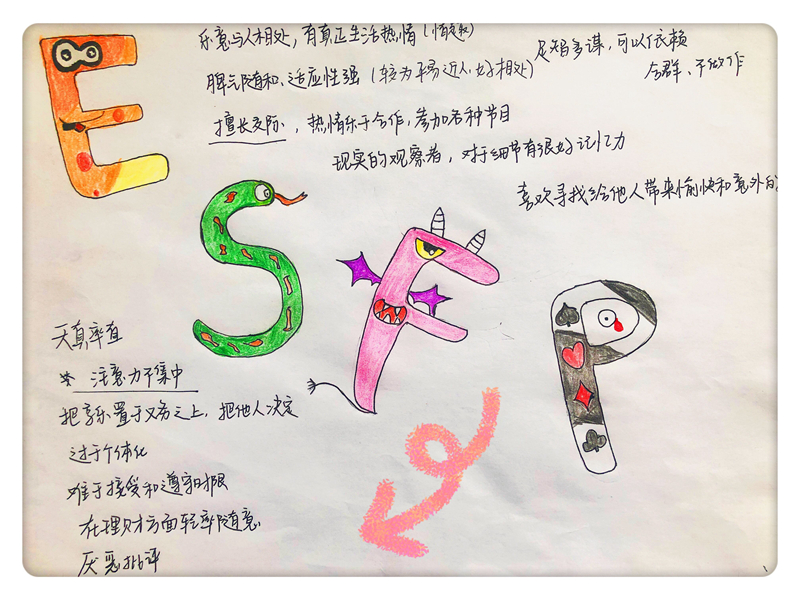 乐意与人相处,有真正生活热情(情
足智多谋,可以依赖
脾气随和、适应性强(较为平易近人好相处)
合群、不做作
擅长交际,热情乐于合作,参加各种节目
现实的观察者,对于细节有很好记忆力
喜欢寻找给他人带来愉快和意外的
E
S
F
P
天真率直
* 注意力不集中
把享乐置于义务之上,把他人决定
过于个体化
难于接受和遵守时限
在理财方面轻率随意
厌恶批评